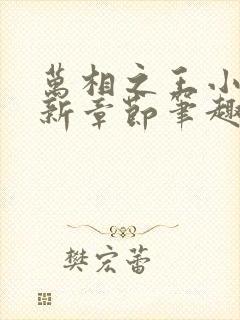 萬相之王小
新章節筆趣
樊宏蕾